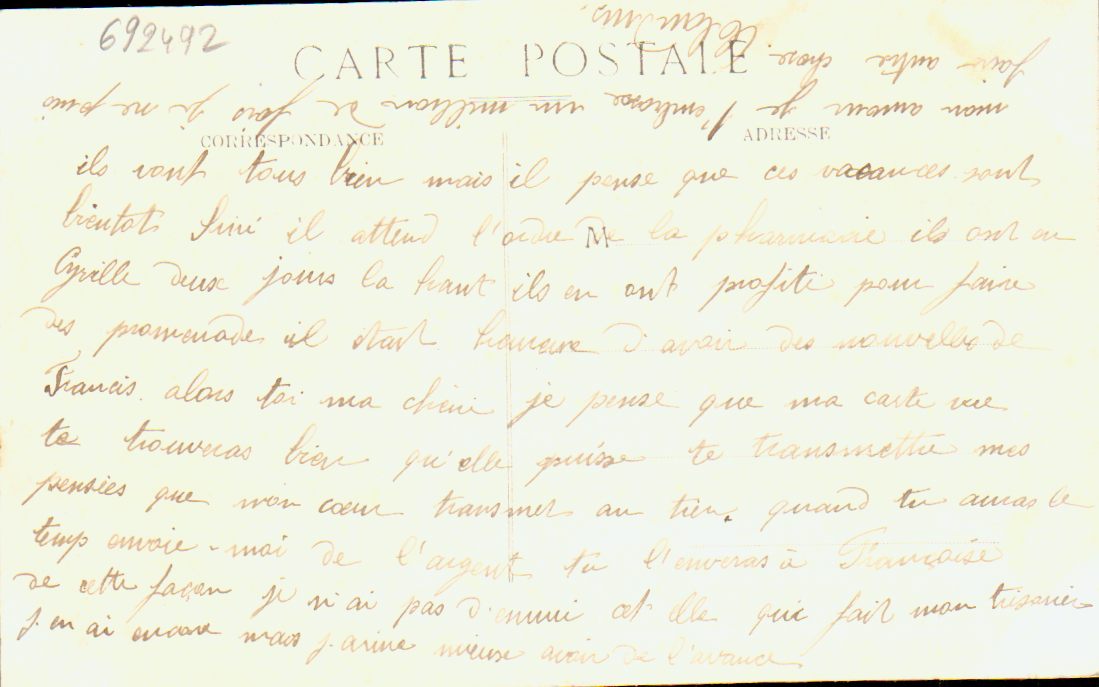 692492
CARTE POSTALE
CORRESPONDANCE
ADRESSE
M
ils vont tous bien mais il pense que ces vacances sont
bientot fini il attend l'ordre de la pharmacie ils ont eu
Cyrille deux jours la haut ils en ont profité pour faire
des promenade il était heureux d'avoir des nouvelles de
Francis. alors toi ma chérie je pense que ma carte vue
te trouveras bien qu'elle puisse te transmettre mes
pensées que mon cœur transmet au tien. quand tu auras le
temp envoie-moi de l'argent tu l'enveras à Françoise
de cette façon je n'ai pas d'ennui cet elle qui fait mon trésorier
j'en ai encore mais j'arime mieuse avoir de l'avance
mon amour je t'embrasse un million de fois si ne puis
faire autre chose.